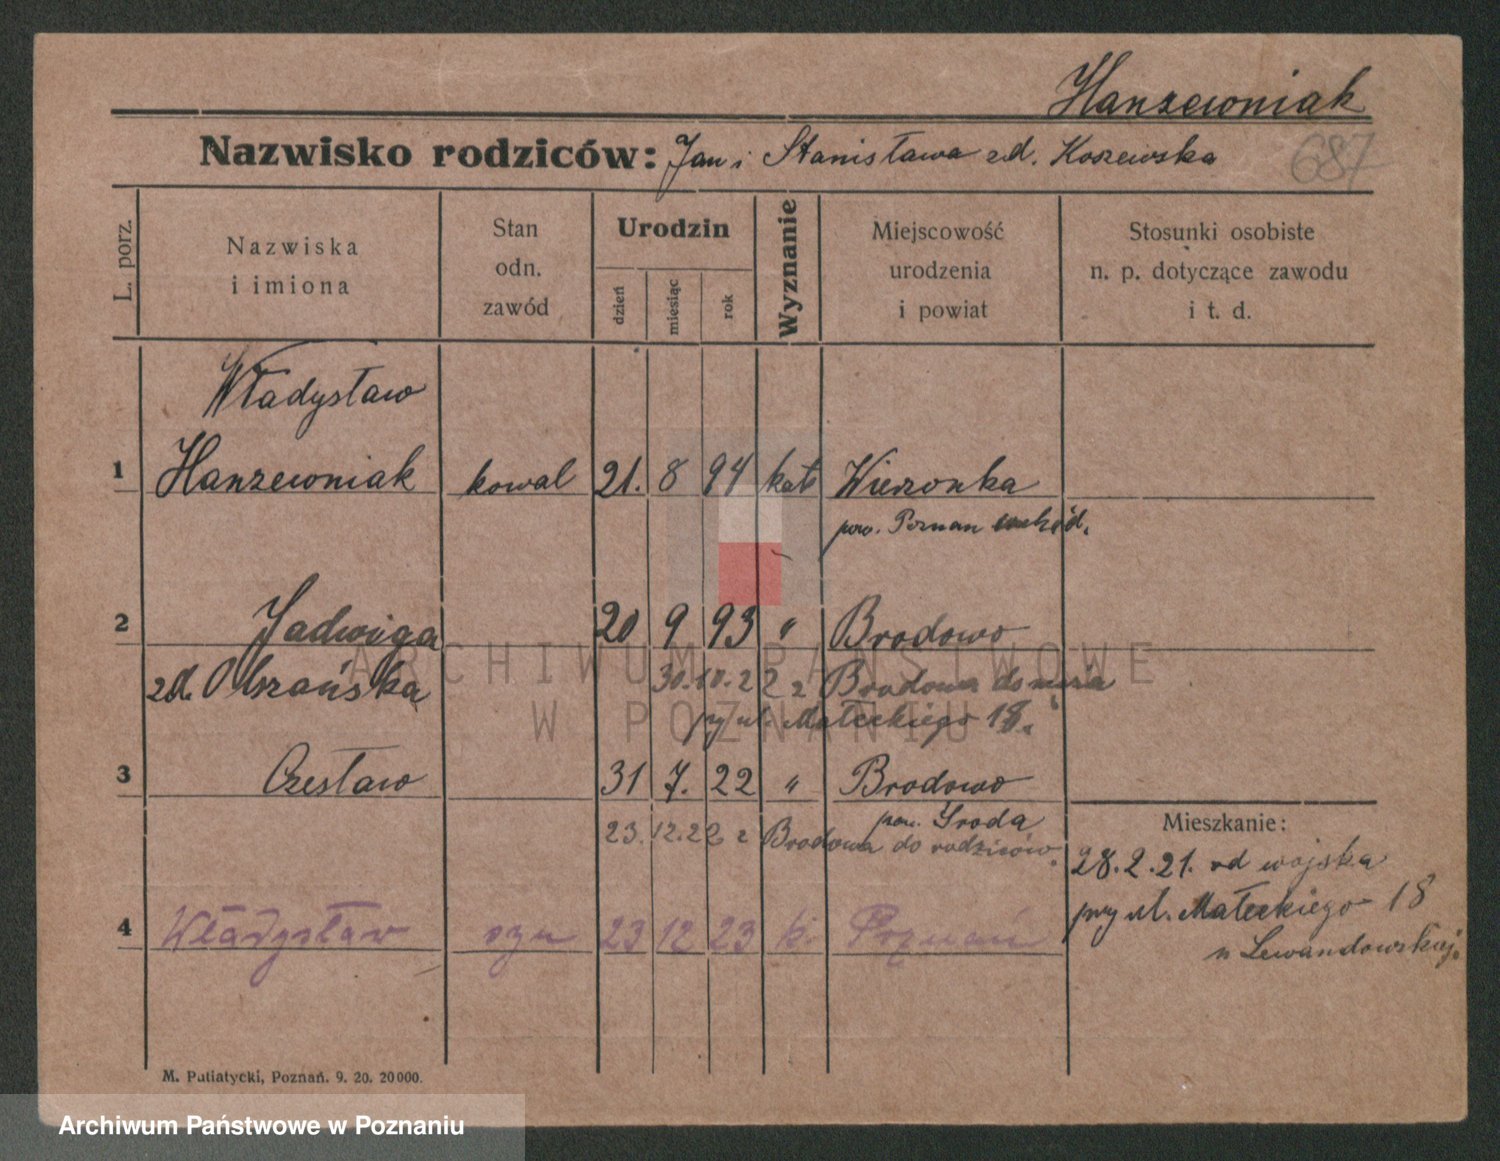 Hanzewniak
Nazwisko rodziców: Jan i Stanisława zd. Koszewska
687
L. porz.
Nazwiska i imiona
Stan odn. zawód
Urodzin
dzień
miesiąc
rok
Wyznanie
Miejscowość urodzenia i powiat
Stosunki osobiste n. p. dotyczące zawodu i t. d.
Władysław
1 Hanzewniak kowal 21. 8 94 kat Wierzonka
pow. Poznan wschód.
2 Jadwiga 20 9 93 " Brodowo
zd. Olszańska 30.10.22 z Brodowa do męża
przy ul. Małeckiego 18.
3 Czesław 31 7. 22 " Brodowo
pow. Środa
23.12.22 z Brodowa do rodziców.
Mieszkanie:
28.2.21. od wojska
przy ul. Małeckiego 18
u Lewandowskiej.
4 Władysław syn 23 12 23 k. Poznań
M. Putiatycki, Poznań. 9. 20. 20000.
ARCHIWUM PAŃSTWOWE
W POZNANIU
Archiwum Państwowe w Poznaniu